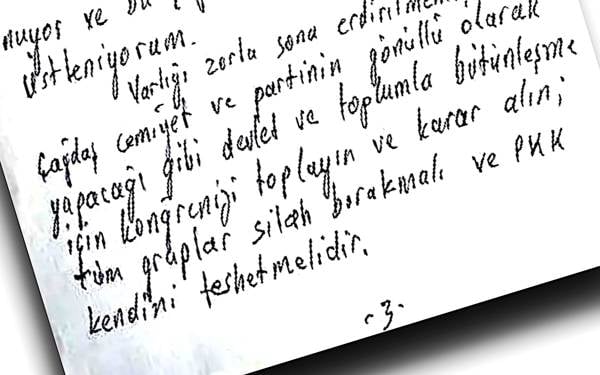 nuyor ve bu
üstleniyorum.
Varlığı zorla sona erdirilmemiş
çağdaş cemiyet ve partinin gönüllü olarak
yapacağı gibi devlet ve toplumla bütünleşme
için kongrenizi toplayın ve karar alın;
tüm gruplar silah bırakmalı ve PKK
kendini feshetmelidir.
-3-